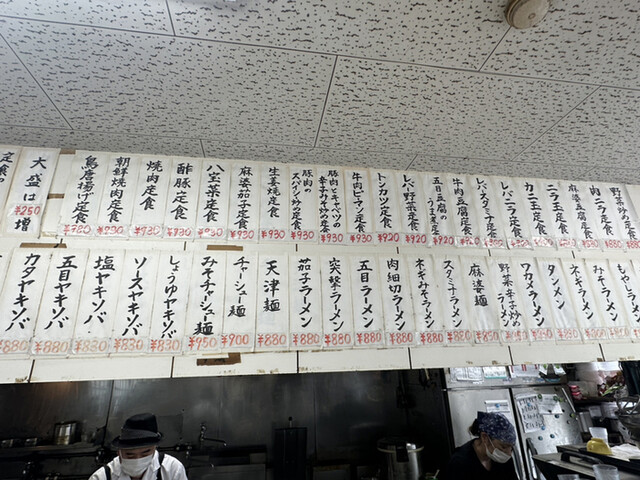 大盛は ¥250 増
鳥唐揚げ定食 ¥930
朝鮮焼肉定食 ¥930
焼肉定食 ¥930
酢豚定食 ¥930
八宝菜定食 ¥930
麻婆茄子定食 ¥930
生姜焼定食 ¥930
豚肉のスパイシー炒め定食 ¥930
豚肉とキャベツの辛子みそ炒め定食 ¥930
牛肉ピーマン定食 ¥930
トンカツ定食 ¥920
レバ野菜定食 ¥920
五目豆腐のうま煮定食 ¥920
牛肉豆腐定食
レバスタミナ定食
レバニラ定食
カニ玉定食
ニラ玉定食
麻婆豆腐定食
肉ニラ定食 ¥880
野菜炒め定食 ¥880
カタヤキソバ ¥880
五目ヤキソバ ¥880
塩ヤキソバ ¥830
ソースヤキソバ ¥830
しょうゆヤキソバ ¥830
みそチャーシュー麺 ¥950
チャーシュー麺 ¥900
天津麺 ¥880
茄子ラーメン ¥880
突撃ラーメン ¥880
五目ラーメン ¥880
肉細切ラーメン ¥880
ネギみそラーメン ¥880
スタミナラーメン
麻婆麺
野菜辛子炒めラーメン
ワカメラーメン
タンメン
ネギラーメン
みそラーメン
もやしラーメン